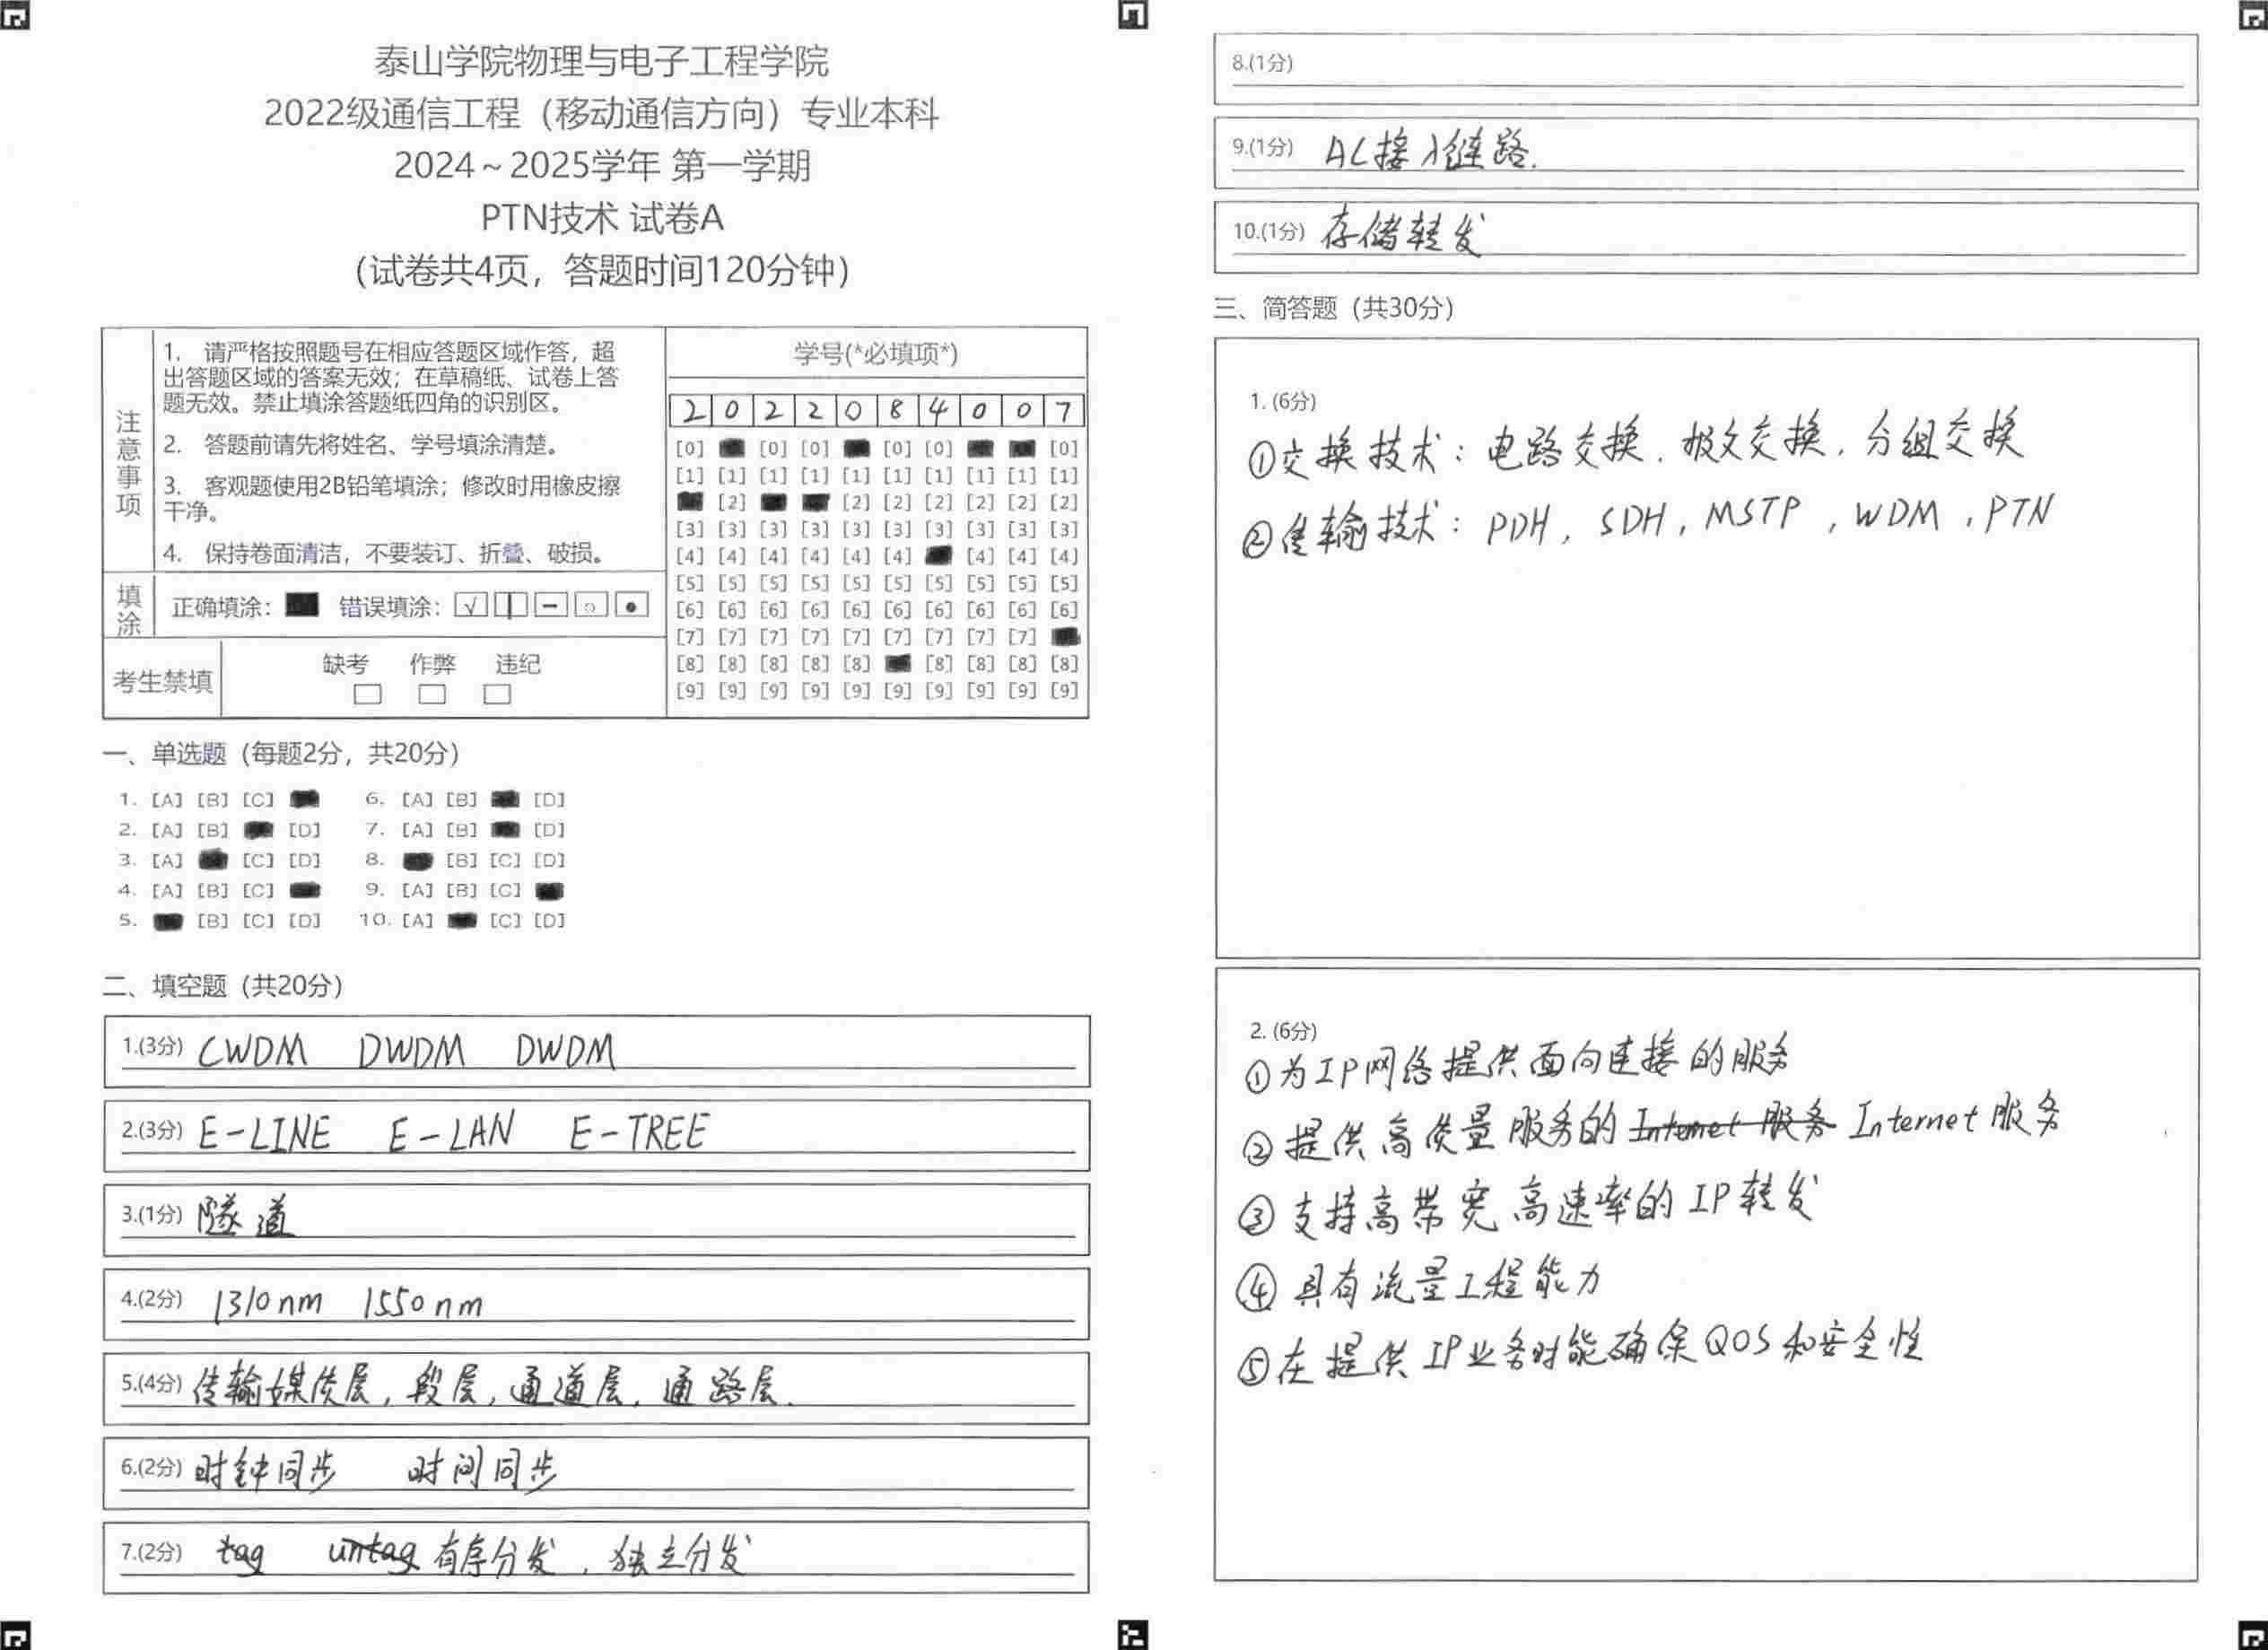 泰山学院物理与电子工程学院
2022级通信工程（移动通信方向）专业本科
2024～2025学年 第一学期
PTN技术 试卷A
(试卷共4页，答题时间120分钟)
注意事项
1. 请严格按照题号在相应答题区域作答，超
出答题区域的答案无效；在草稿纸、试卷上答
题无效。禁止填涂答题纸四角的识别区。
2. 答题前请先将姓名、学号填涂清楚。
3. 客观题使用2B铅笔填涂；修改时用橡皮擦
干净。
4. 保持卷面清洁，不要装订、折叠、破损。
填涂
正确填涂： 错误填涂：
考生禁填
缺考 作弊 违纪
学号(*必填项*)
2 0 2 2 0 8 4 0 0 7
[0] [0] [0] [0] [0] [0]
[1] [1] [1] [1] [1] [1] [1] [1] [1] [1]
[2] [2] [2] [2] [2] [2] [2]
[3] [3] [3] [3] [3] [3] [3] [3] [3] [3]
[4] [4] [4] [4] [4] [4] [4] [4] [4]
[5] [5] [5] [5] [5] [5] [5] [5] [5] [5]
[6] [6] [6] [6] [6] [6] [6] [6] [6] [6]
[7] [7] [7] [7] [7] [7] [7] [7] [7]
[8] [8] [8] [8] [8] [8] [8] [8] [8]
[9] [9] [9] [9] [9] [9] [9] [9] [9] [9]
一、单选题（每题2分，共20分）
1. [A] [B] [C] 6. [A] [B] [D]
2. [A] [B] [D] 7. [A] [B] [D]
3. [A] [C] [D] 8. [B] [C] [D]
4. [A] [B] [C] 9. [A] [B] [C]
5. [B] [C] [D] 10. [A] [C] [D]
二、填空题（共20分）
1.(3分) CWDM DWDM DWDM
2.(3分) E-LINE E-LAN E-TREE
3.(1分) 隧道
4.(2分) 1310nm 1550nm
5.(4分) 传输媒质层，段层，通道层，通路层.
6.(2分) 时钟同步 时间同步
7.(2分) tag untag 有序分发，独立分发
8.(1分)
9.(1分) AC接入链路.
10.(1分) 存储转发
三、简答题（共30分）
1. (6分)
①交换技术：电路交换．报文交换．分组交换
②传输技术：PDH，SDH，MSTP，WDM，PTN
2. (6分)
①为IP网络提供面向连接的服务
②提供高质量服务的Internet服务 Internet服务
③支持高带宽高速率的IP转发
④具有流量工程能力
⑤在提供IP业务时能确保QOS和安全性